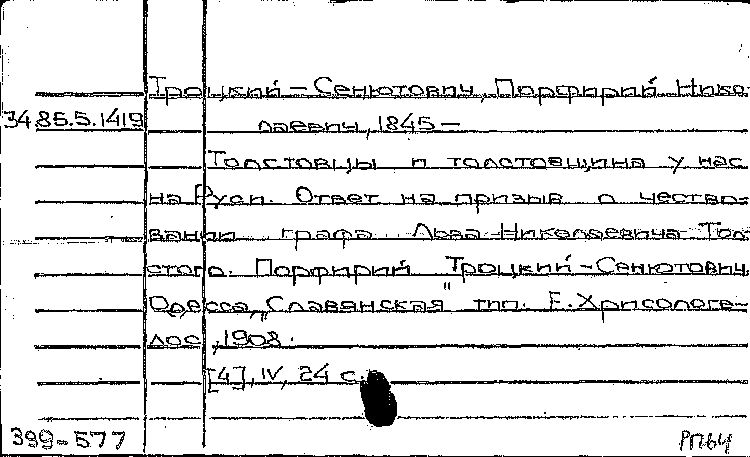 Троцкий-Сенютович, Порфирий Нико-
34.85.5.1419 лаевич, 1845-
Толстовцы и толстовщина у нас
на Руси. Ответ на призыв о чество-
вании графа Льва Николаевича Тол-
стого. Порфирий Троцкий-Сенютович.
Одесса, "Славянская" тип. Е. Хрисоге-
лос, 1908.
[4], IV, 24 с.
399-577